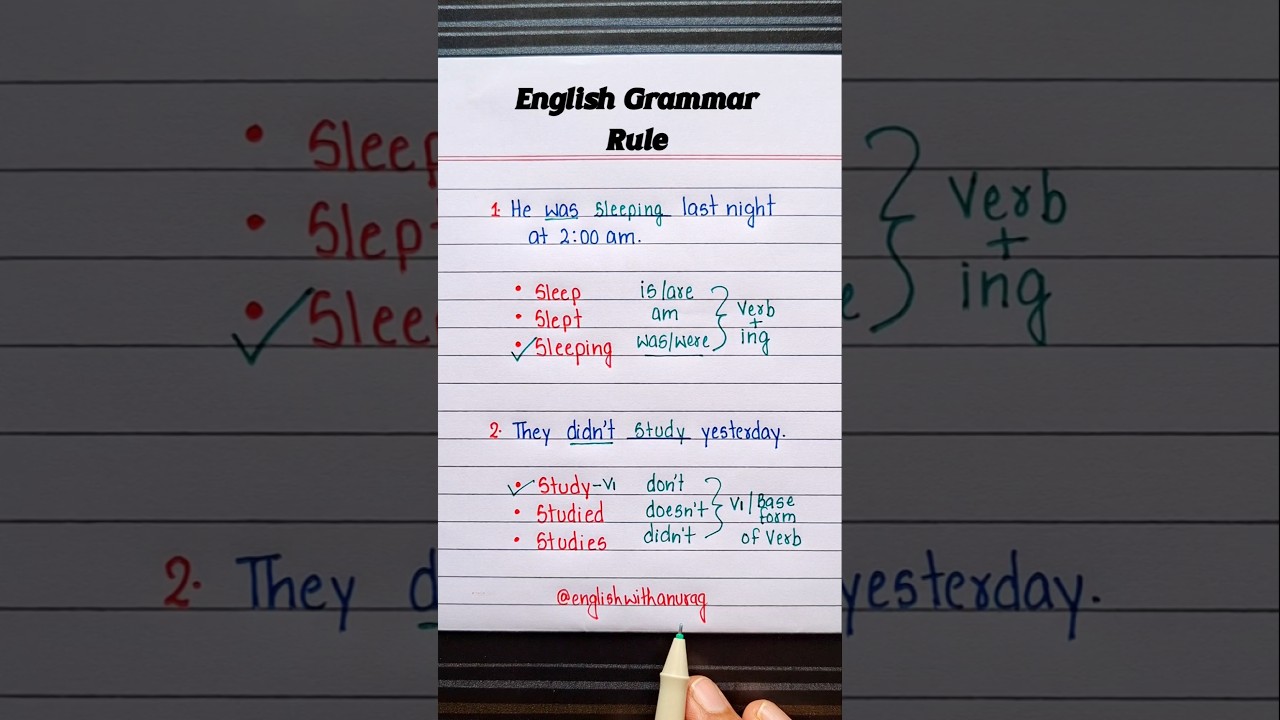 English Grammar
Rule
1. He was sleeping last night
at 2:00 am.
• Sleep is/are
• Slept am
✓• Sleeping was/were
Verb
+
ing
2. They didn't study yesterday.
✓• Study-V1 don't
• Studied doesn't
• Studies didn't
V1/Base
form
of Verb
@englishwithanurag
• Sleep
• Slept
✓• Slee
Verb
+
ing
2. They d
yesterday.